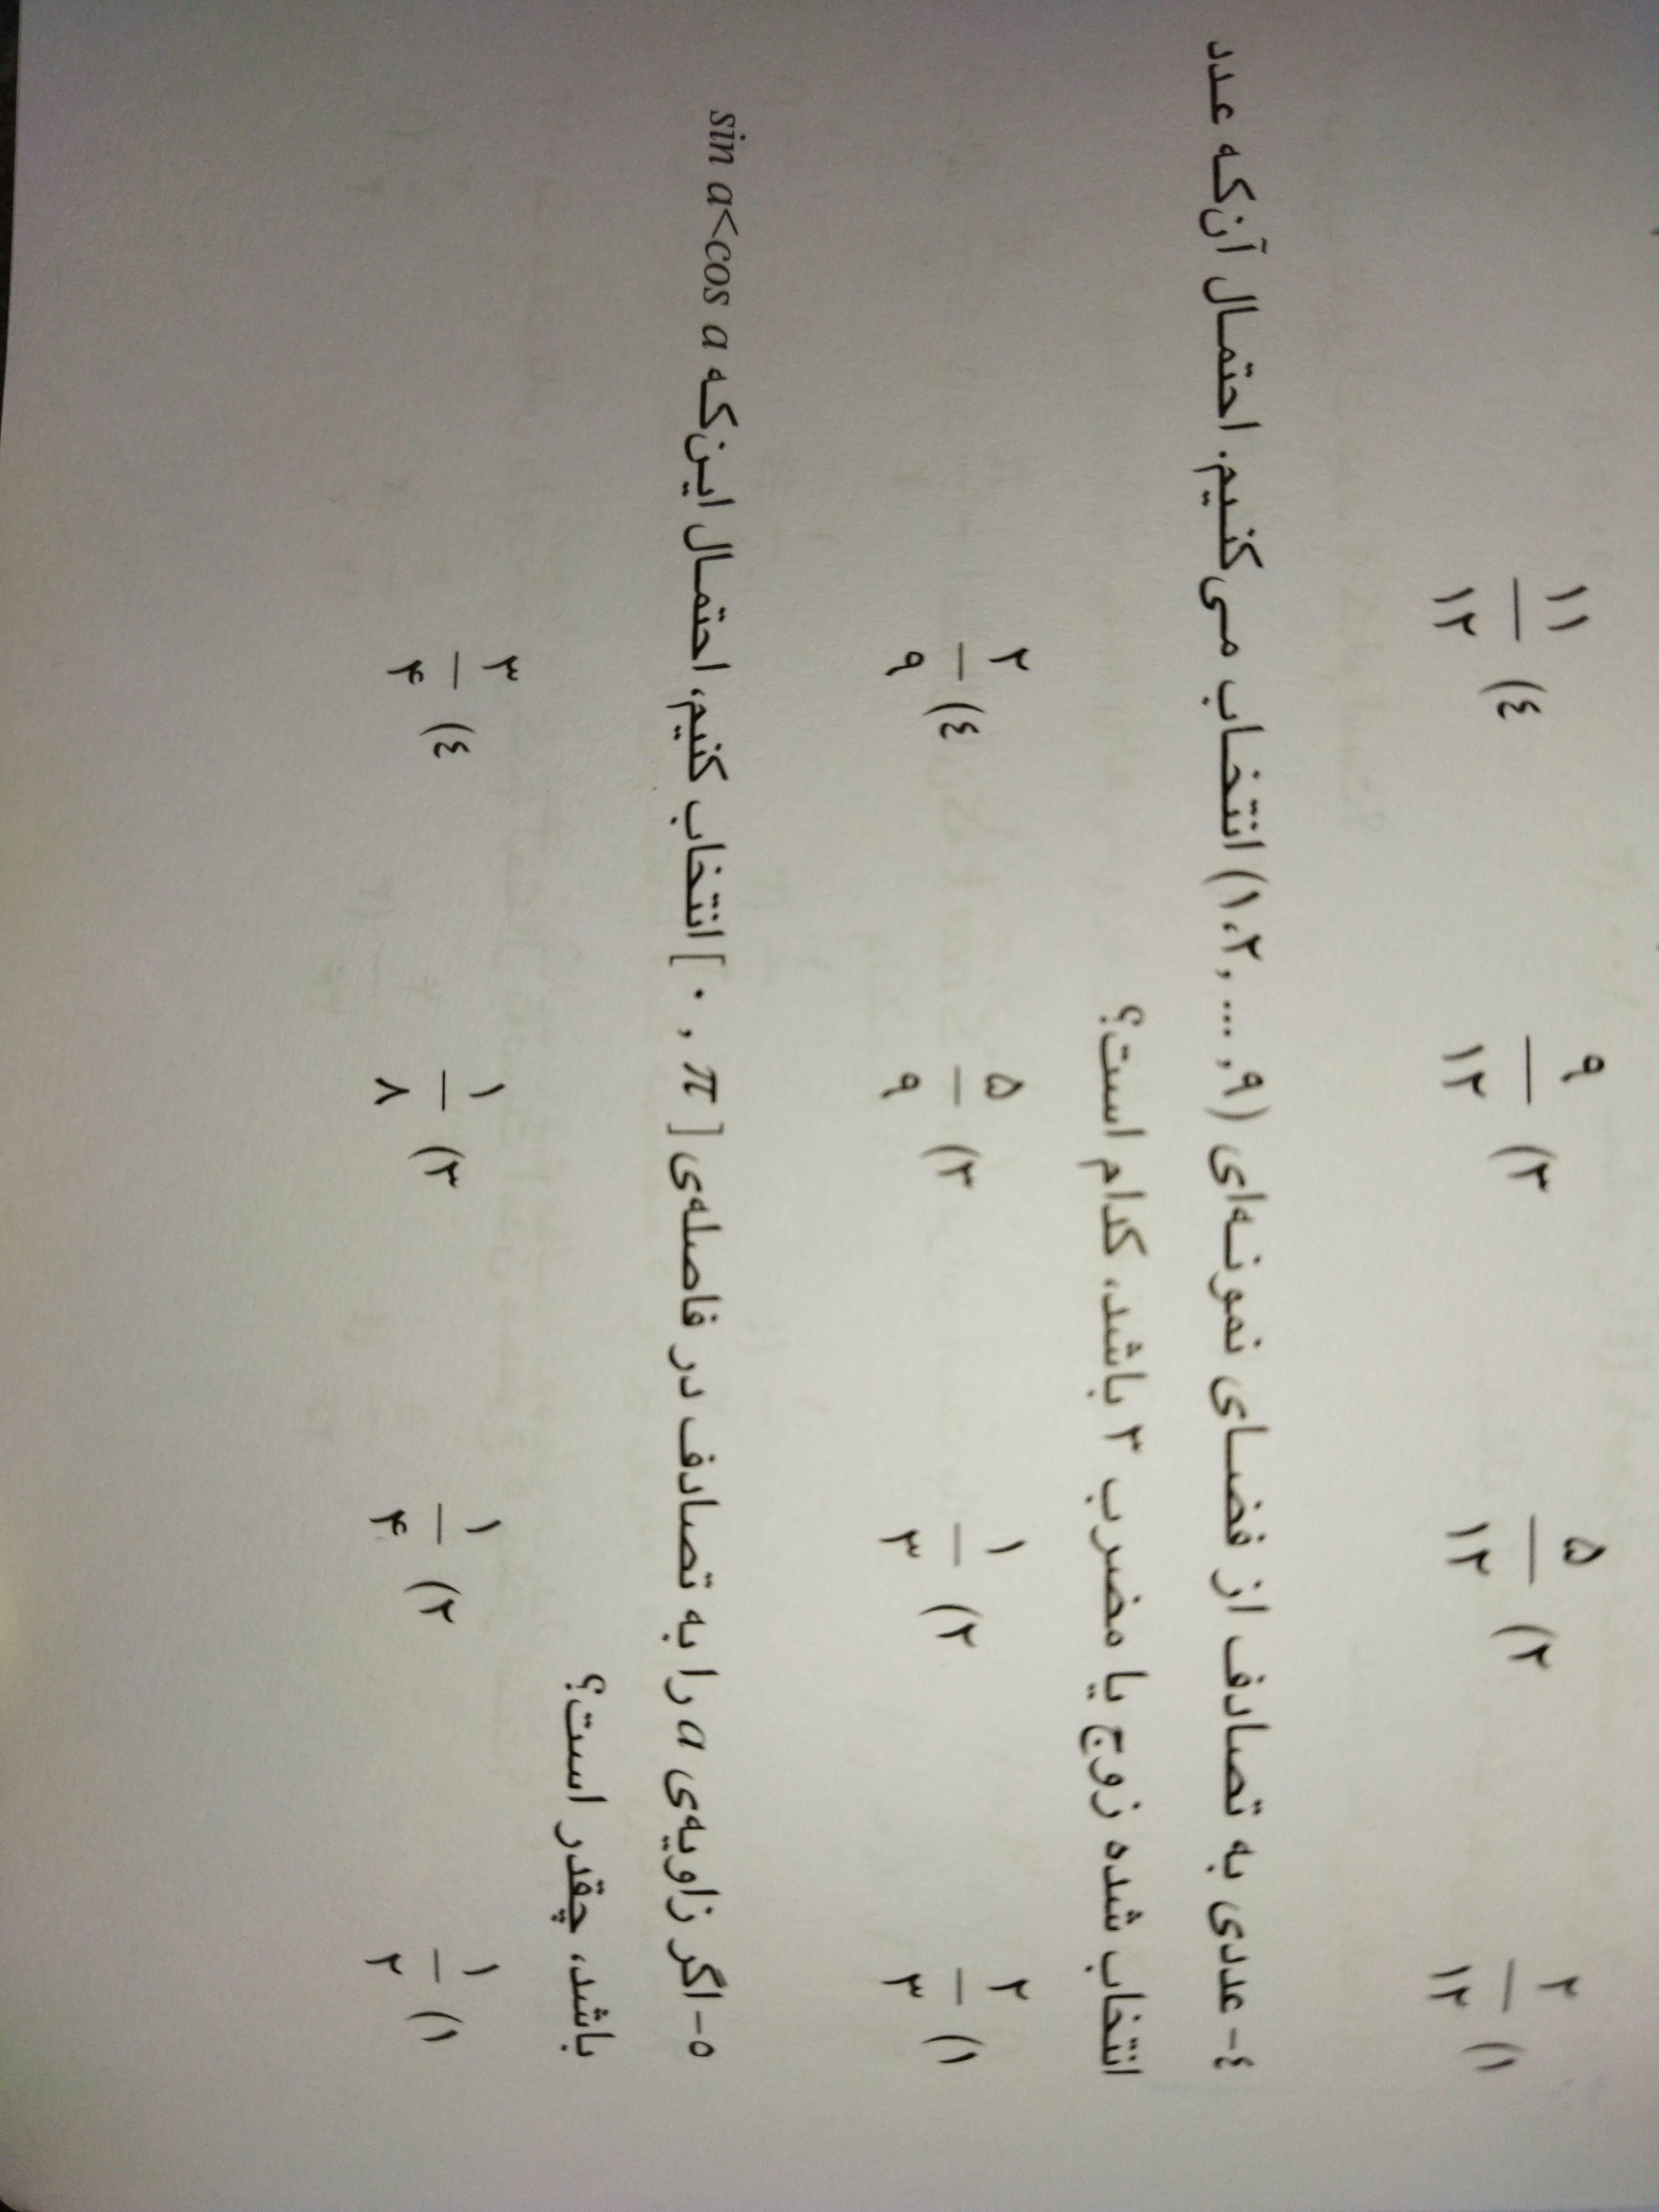 ۱) ۲/۱۲ ۲) ۵/۱۲ ۳) ۹/۱۲ ٤) ۱۱/۱۲
٤- عددی به تصادف از فضای نمونه‌ای (۹, ... ,۱،۲) انتخاب می‌کنیم. احتمال آن‌که عدد
انتخاب شده زوج یا مضرب ۳ باشد، کدام است؟
۱) ۲/۳ ۲) ۱/۳ ۳) ۵/۹ ٤) ۲/۹
۵- اگر زاویه‌ی a را به تصادف در فاصله‌ی [۰ , π] انتخاب کنیم، احتمال این‌که sin a<cos a
باشد، چقدر است؟
۱) ۱/۲ ۲) ۱/۴ ۳) ۱/۸ ٤) ۳/۴